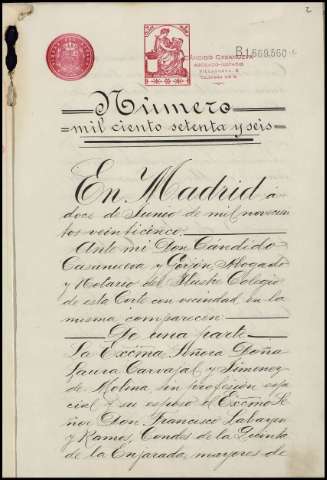 2
B.1.669.560
CÁNDIDO CASANUEVA
ABOGADO-NOTARIO
Número
mil ciento setenta y seis
En Madrid á
doce de Junio de mil novecien
tos veinticinco.
Ante mi Don Cándido
Casanueva y Gorjón, Abogado
y Notario del Ilustre Colegio
de esta Corte con vecindad en la
misma comparecen
De una parte
La Excma Señora Doña
Laura Carvajal y Jimenez
de Molina sin profesión espe
cial y su esposo el Excmo Se
ñor Don Francisco Labayen
y Ramos, Condes de la Quinta
de la Enjarada, mayores de